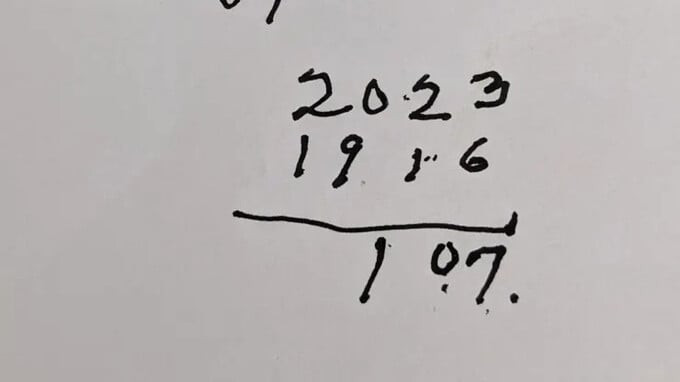 2023
1916
107.